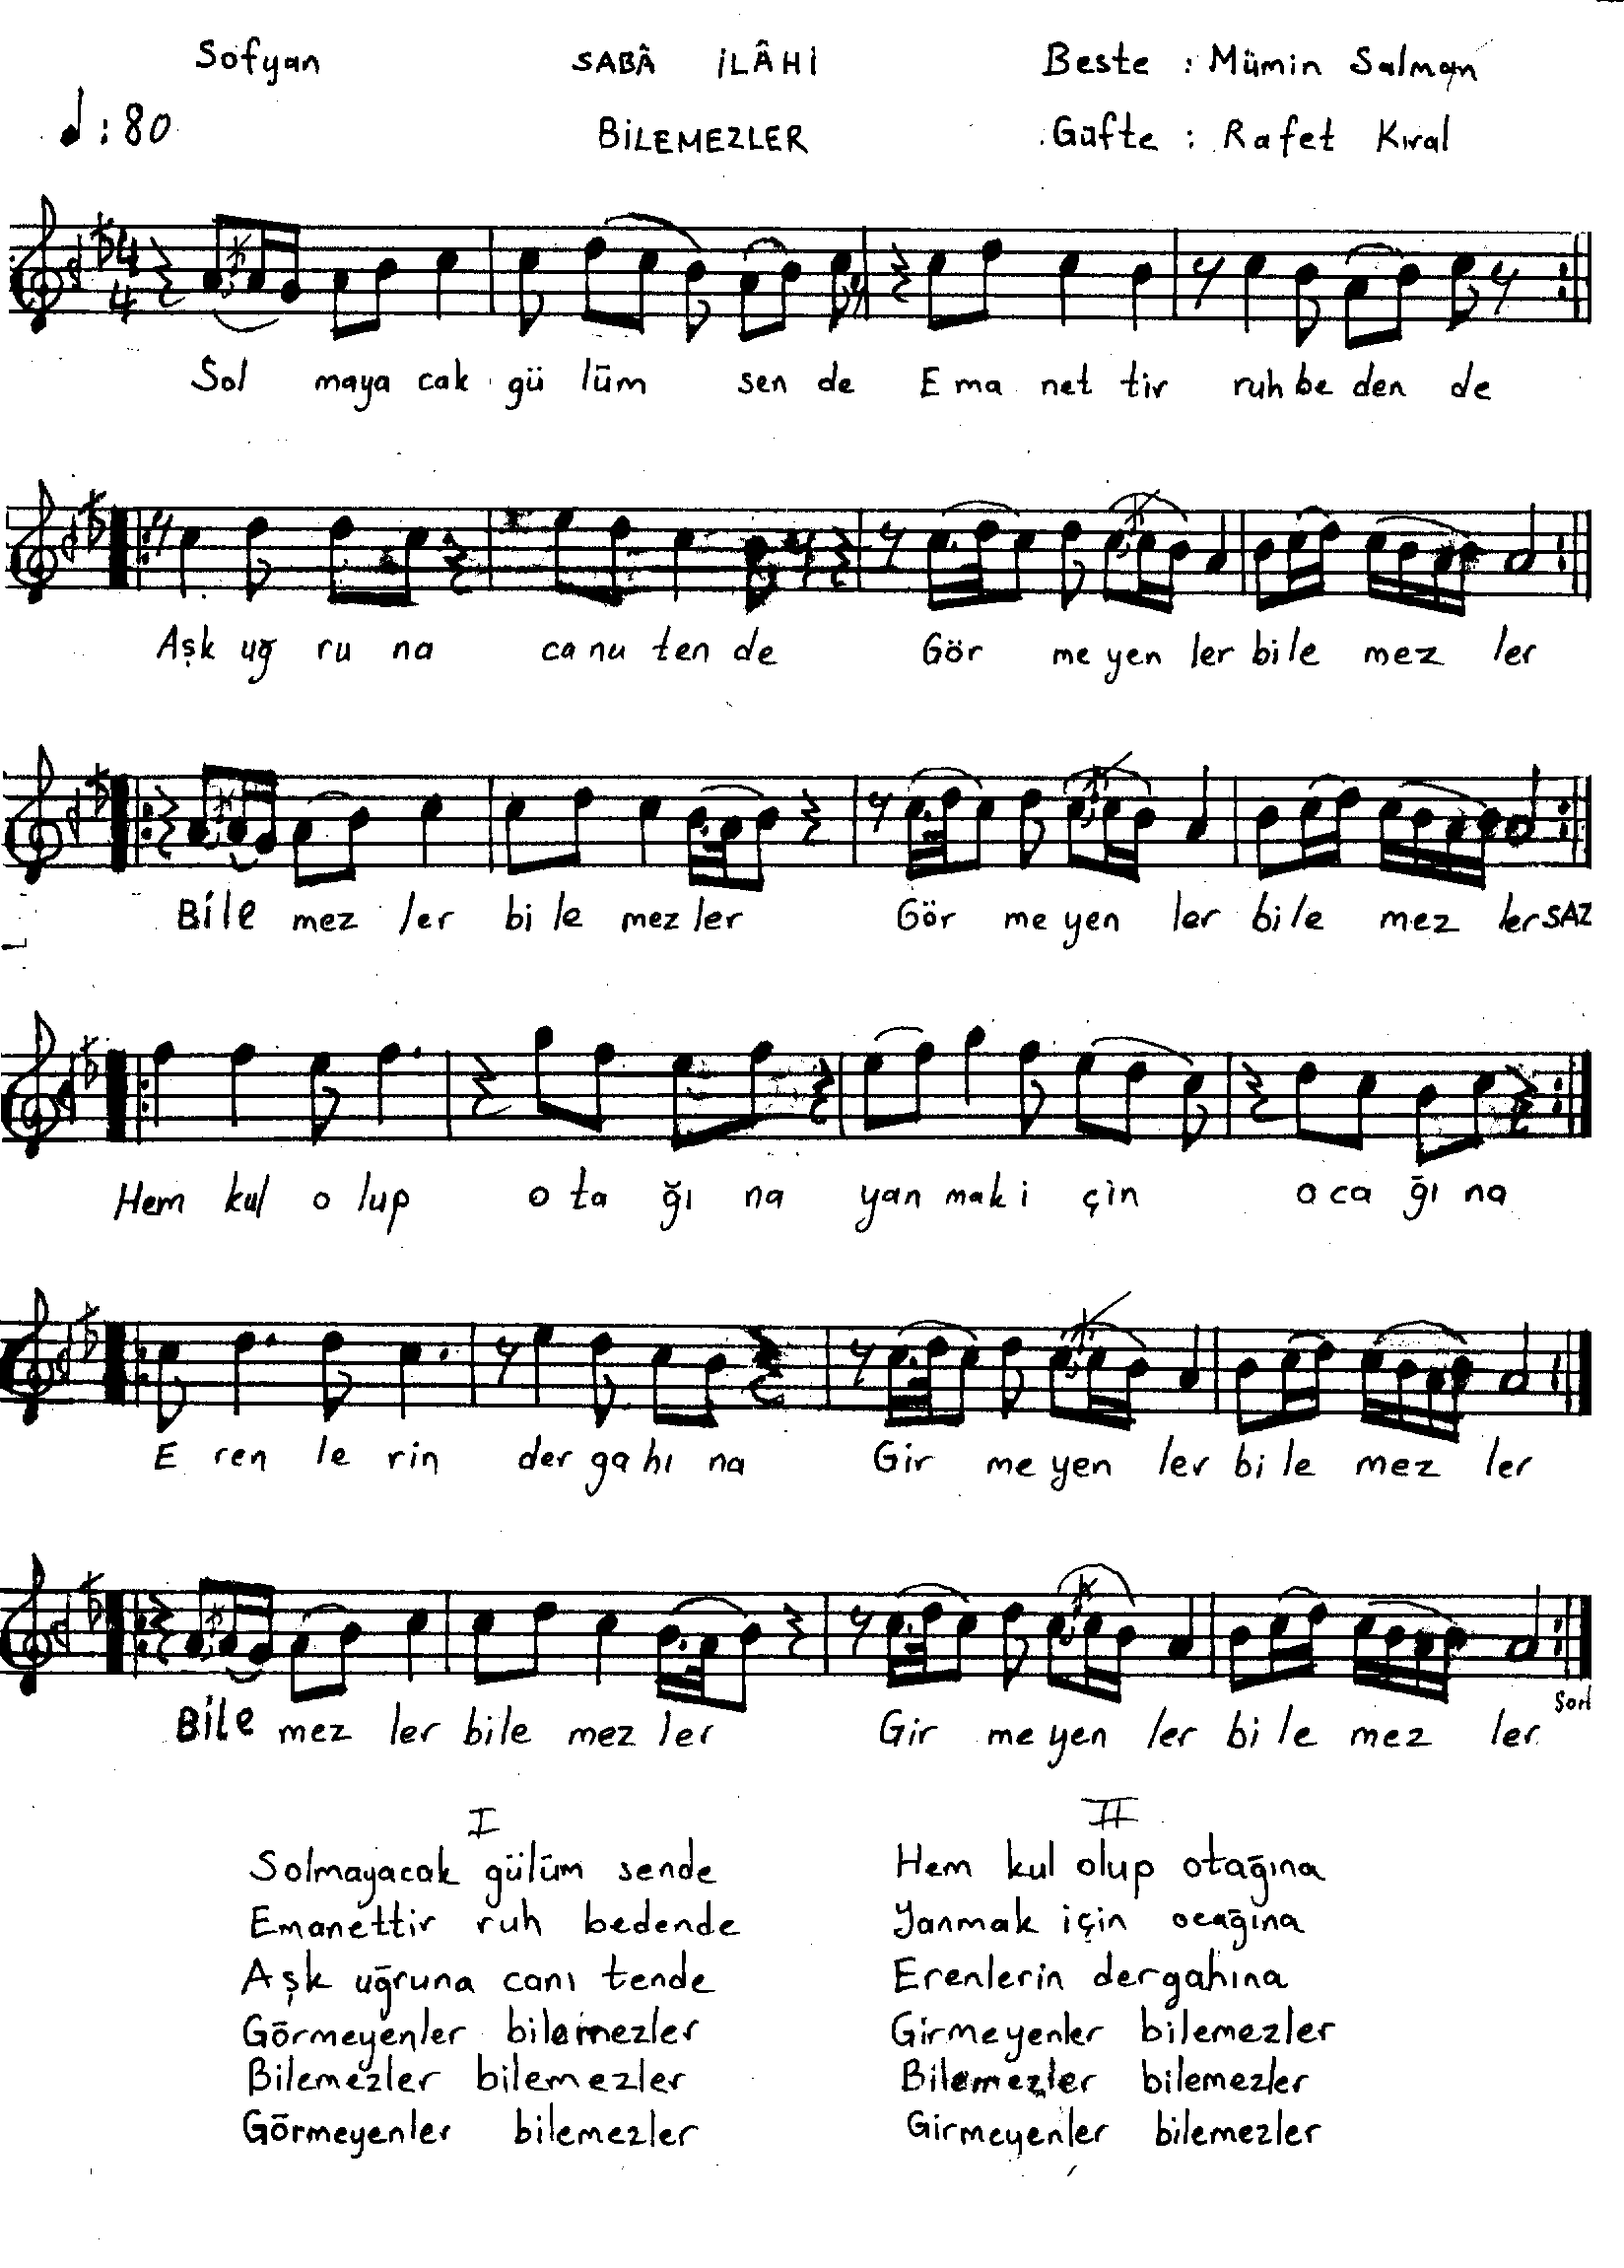 Sofyan SABÂ İLÂHİ Beste : Mümin Salman
: 80 BİLEMEZLER Güfte : Rafet Kıral
4
4
Sol maya cak gü lüm sen de E ma net tir ruh be den de
Aşk uğ ru na ca nu ten de Gör me yen ler bi le mez ler
Bile mez ler bi le mez ler Gör me yen ler bi le mez ler SAZ
Hem kul o lup o ta ğı na yan mak i çin o ca ğı na
E ren le rin der ga hı na Gir me yen ler bi le mez ler
Son
Bile mez ler bi le mez ler Gir me yen ler bi le mez ler
I
Solmayacak gülüm sende
Emanettir ruh bedende
Aşk uğruna canı tende
Görmeyenler bilemezler
Bilemezler bilemezler
Görmeyenler bilemezler
II
Hem kul olup otağına
Yanmak için ocağına
Erenlerin dergahına
Girmeyenler bilemezler
Bilemezler bilemezler
Girmeyenler bilemezler